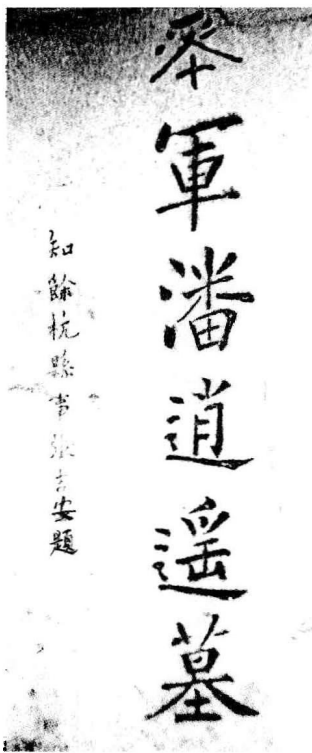 參軍潘逍遙墓
知餘杭縣事張吉安題